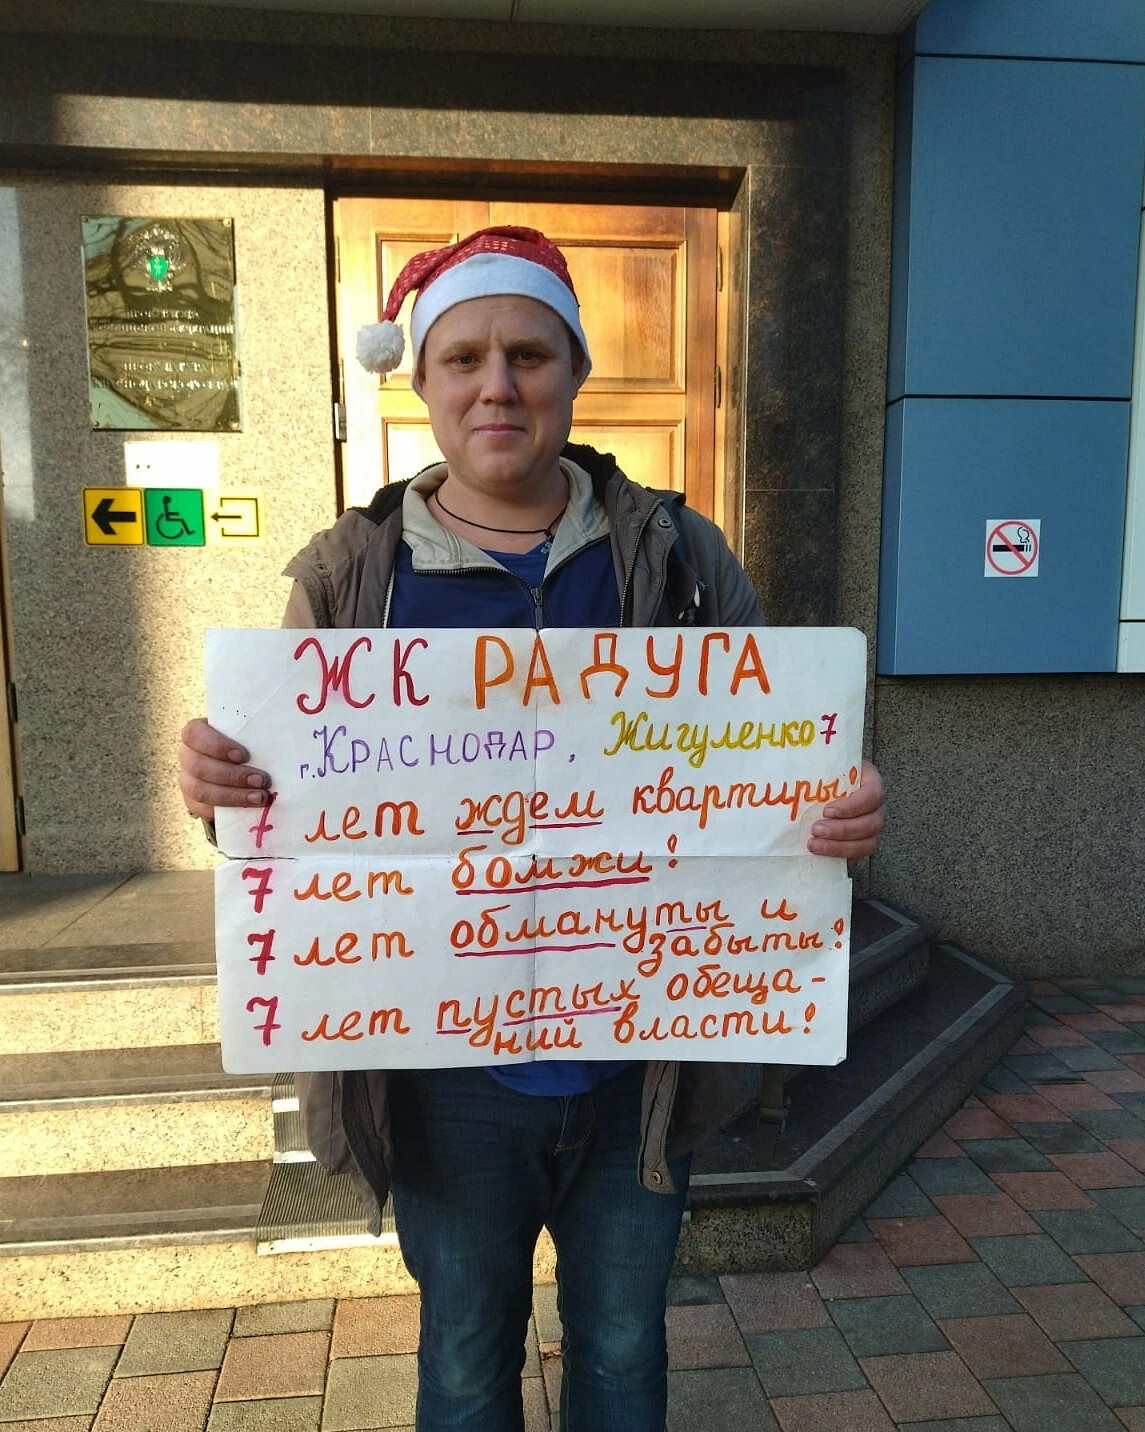 ЖК РАДУГА
г.КРАСНОДАР, Жигуленко 7
7 лет ждем квартиры!
7 лет бомжи!
7 лет обмануты и
забыты!
7 лет пустых обеща-
ний власти!